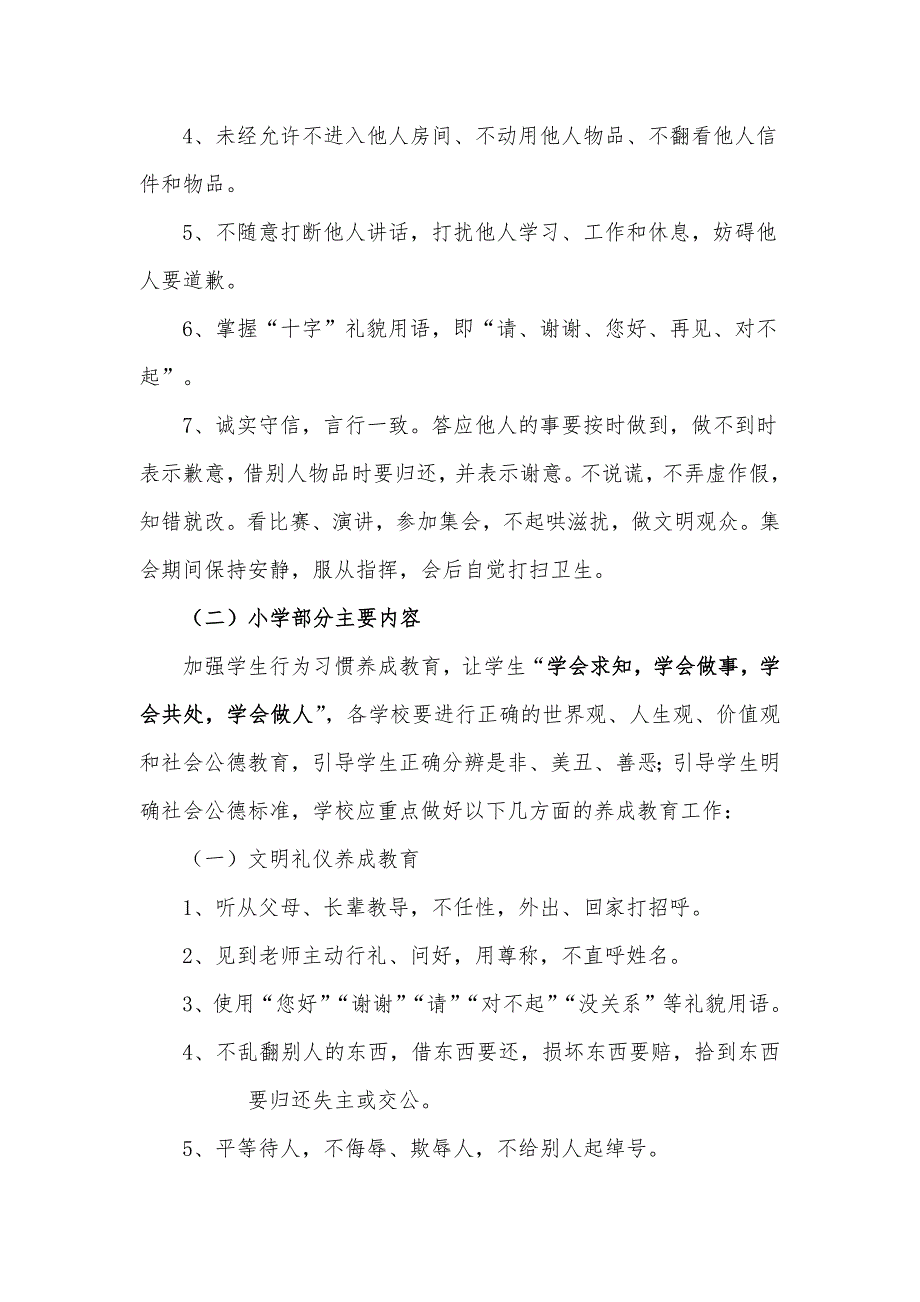 4、未经允许不进入他人房间、不动用他人物品、不翻看他人信
件和物品。
5、不随意打断他人讲话，打扰他人学习、工作和休息，妨碍他
人要道歉。
6、掌握“十字”礼貌用语，即“请、谢谢、您好、再见、对不
起”。
7、诚实守信，言行一致。答应他人的事要按时做到，做不到时
表示歉意，借别人物品时要归还，并表示谢意。不说谎，不弄虚作假，
知错就改。看比赛、演讲，参加集会，不起哄滋扰，做文明观众。集
会期间保持安静，服从指挥，会后自觉打扫卫生。
（二）小学部分主要内容
加强学生行为习惯养成教育，让学生“学会求知，学会做事，学
会共处，学会做人”，各学校要进行正确的世界观、人生观、价值观
和社会公德教育，引导学生正确分辨是非、美丑、善恶；引导学生明
确社会公德标准，学校应重点做好以下几方面的养成教育工作：
（一）文明礼仪养成教育
1、听从父母、长辈教导，不任性，外出、回家打招呼。
2、见到老师主动行礼、问好，用尊称，不直呼姓名。
3、使用“您好”“谢谢”“请”“对不起”“没关系”等礼貌用语。
4、不乱翻别人的东西，借东西要还，损坏东西要赔，拾到东西
要归还失主或交公。
5、平等待人，不侮辱、欺辱人，不给别人起绰号。